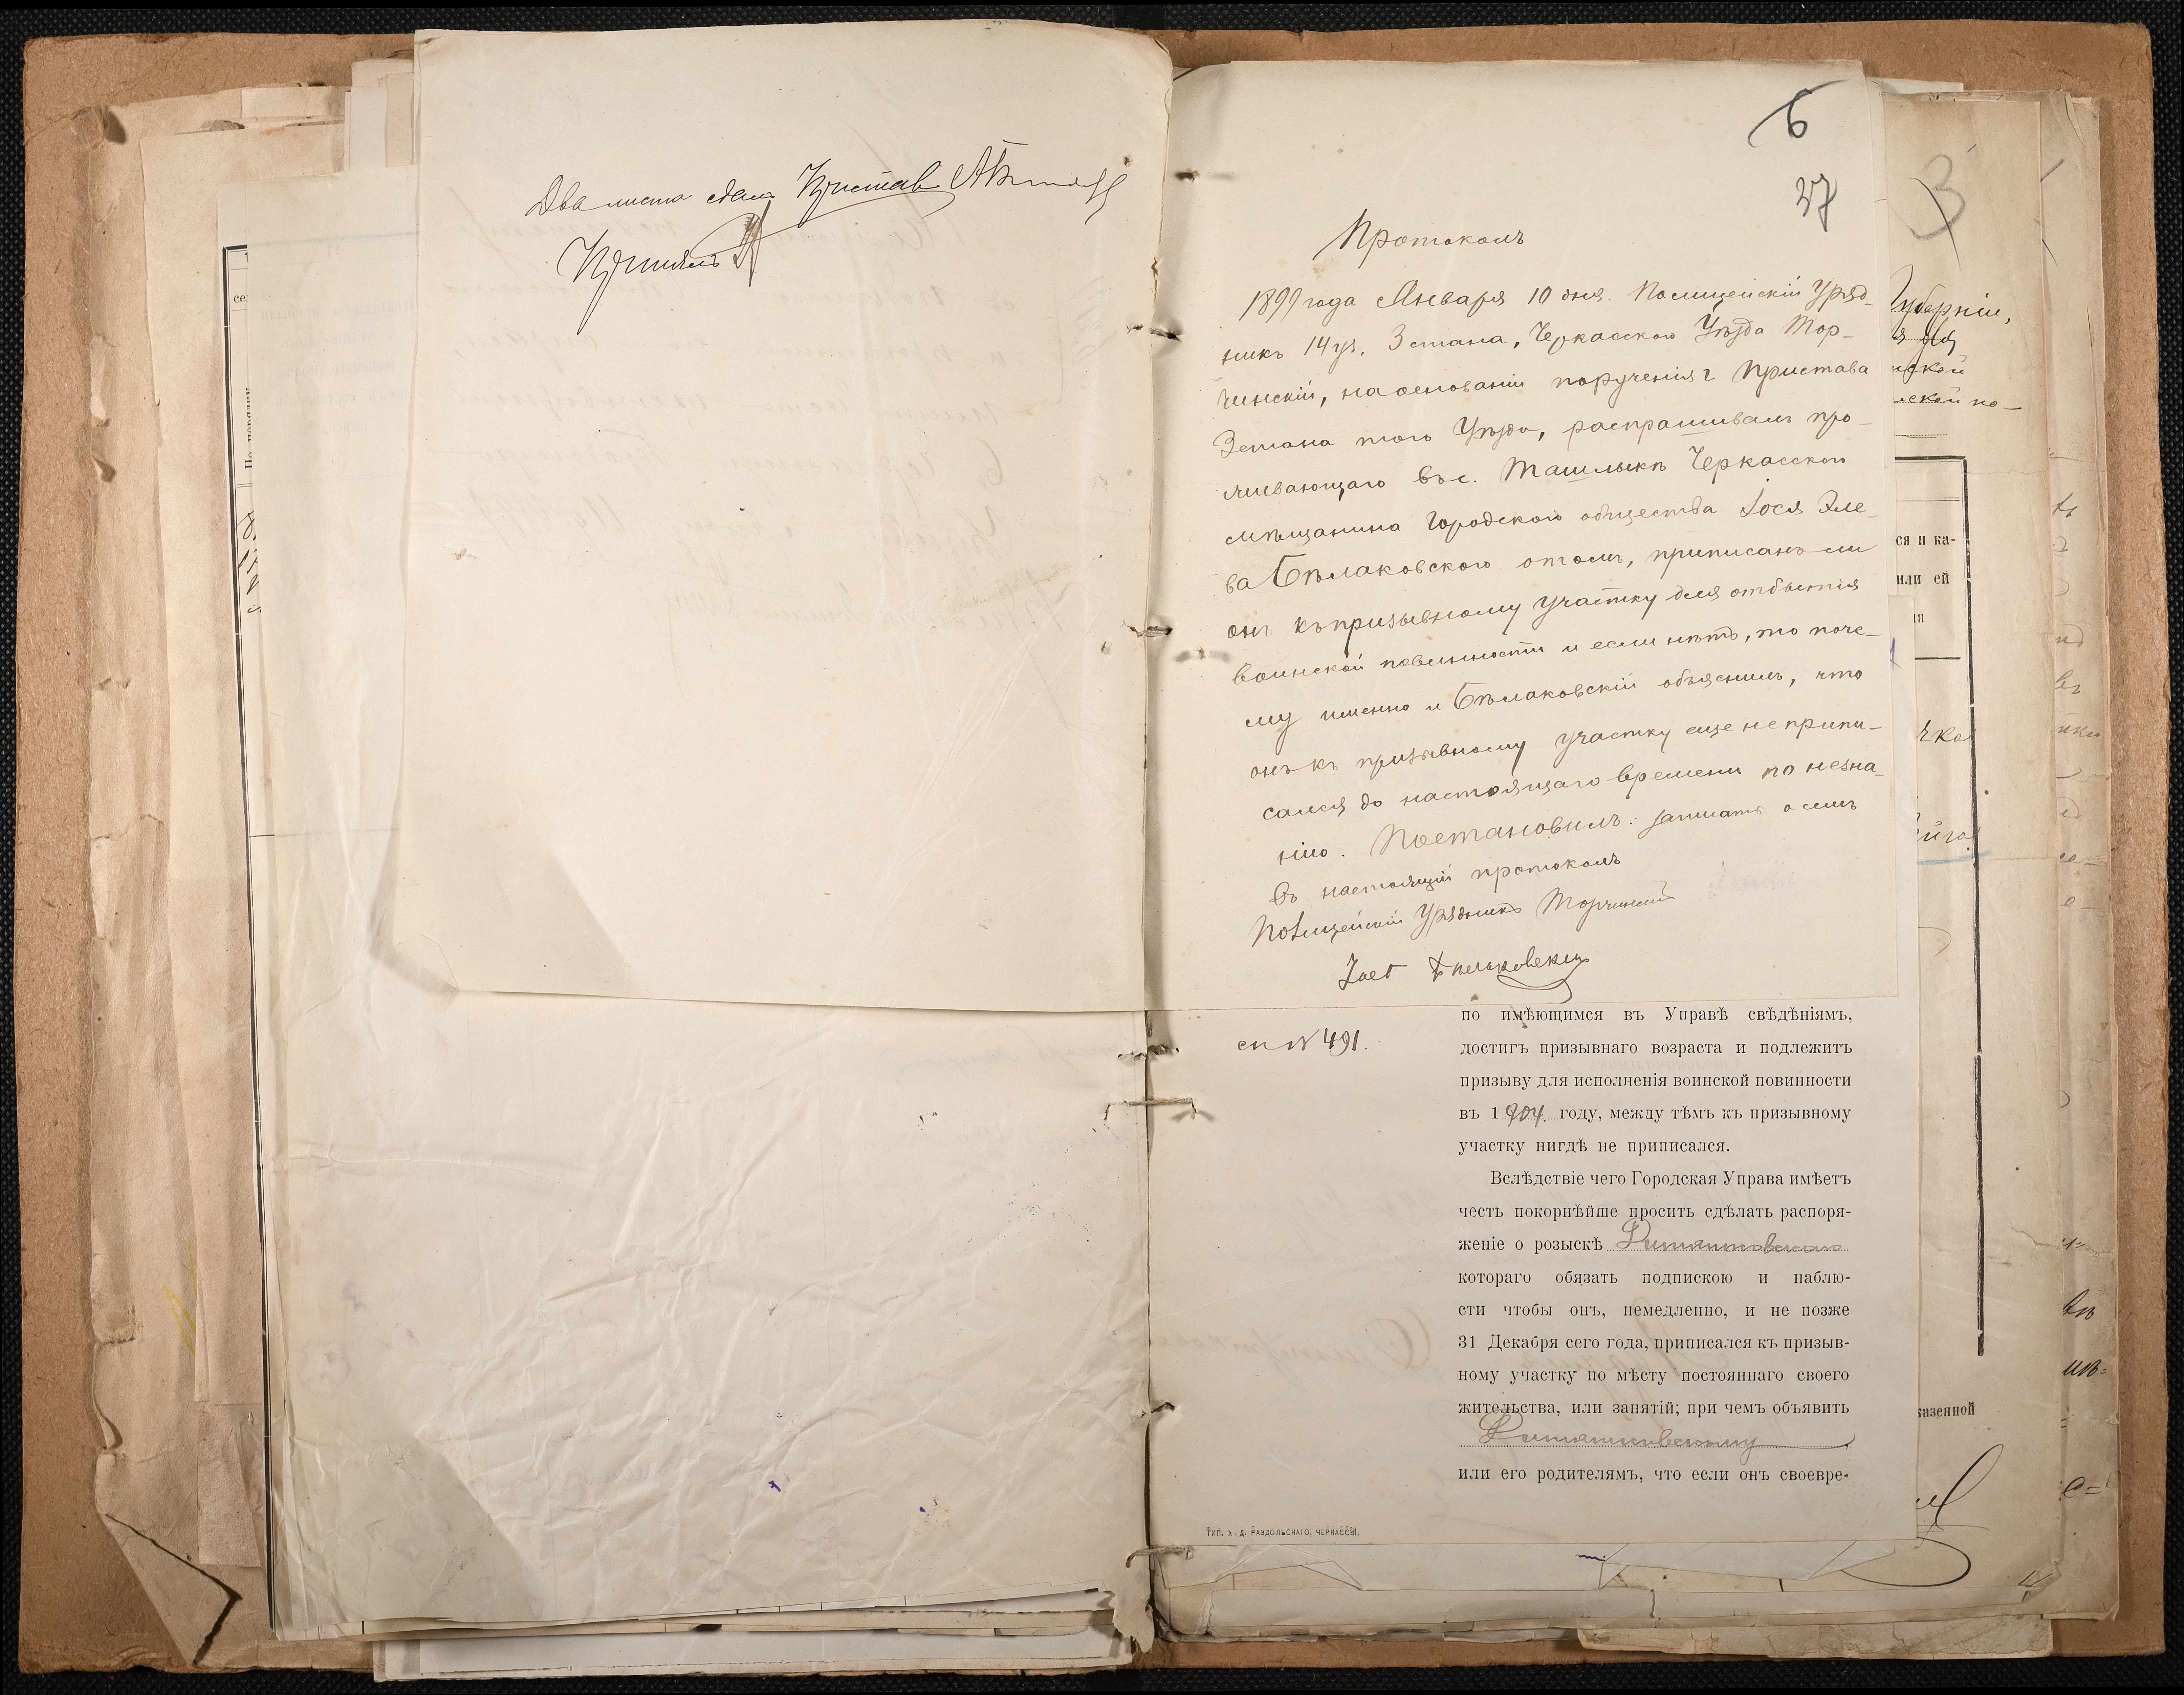 Два листа сдалъ Приставъ
Принялъ
6
37
Протоколъ
1899 года Января 10 дня. Полицейскій Уряд-
никъ 14 уч. 3 стана, Черкасскаго Уѣзда Тор-
чинскій, на основаніи порученія г Пристава
3 стана того Уѣзда, распрашивалъ про-
живающаго въ с. Ташлыкѣ Черкасскаго
мѣщанина Городского общества Іося Эле-
ва Бѣлаковского о томъ, приписанъ ли
онъ къ призывному участку для отбытія
воинской повинности и если нѣтъ, то поче-
му именно и Бѣлаковскій объяснилъ, что
онъ къ призывному участку еще не припи-
сался до настоящаго времени по незна-
нію. Постановилъ: записать о семъ
въ настоящій протоколъ
Полицейскій Урядникъ Торчинскій
сп № 491.
по имѣющимся въ Управѣ свѣдѣніямъ,
достигъ призывнаго возраста и подлежитъ
призыву для исполненія воинской повинности
въ 1904 году, между тѣмъ къ призывному
участку нигдѣ не приписался.
Вслѣдствіе чего Городская Управа имѣетъ
честь покорнѣйше просить сдѣлать распоря-
женіе о розыскѣ
котораго обязать подпискою и наблю-
сти чтобы онъ, немедленно, и не позже
31 Декабря сего года, приписался къ призыв-
ному участку по мѣсту постояннаго своего
жительства, или занятій; при чемъ объявить
или его родителямъ, что если онъ своевре-
Тип. Х. Д. Раздольскаго, Черкассы.
Губерніи,
ской по-
ся и ка-
или ей
казенной